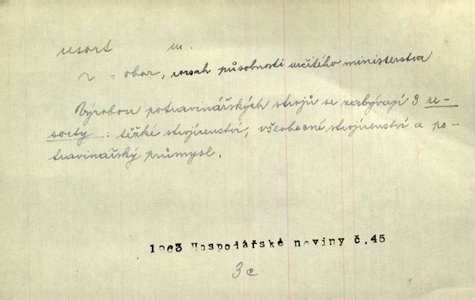 resort m.
~ = obor, rozsah působnosti určitého ministerstva
Výrobou potravinářských strojů se zabývají 3 re-
sorty : těžké strojírenství, všeobecné strojírenství a po-
travinářský průmysl.
1963 Hospodářské noviny č.45
3c